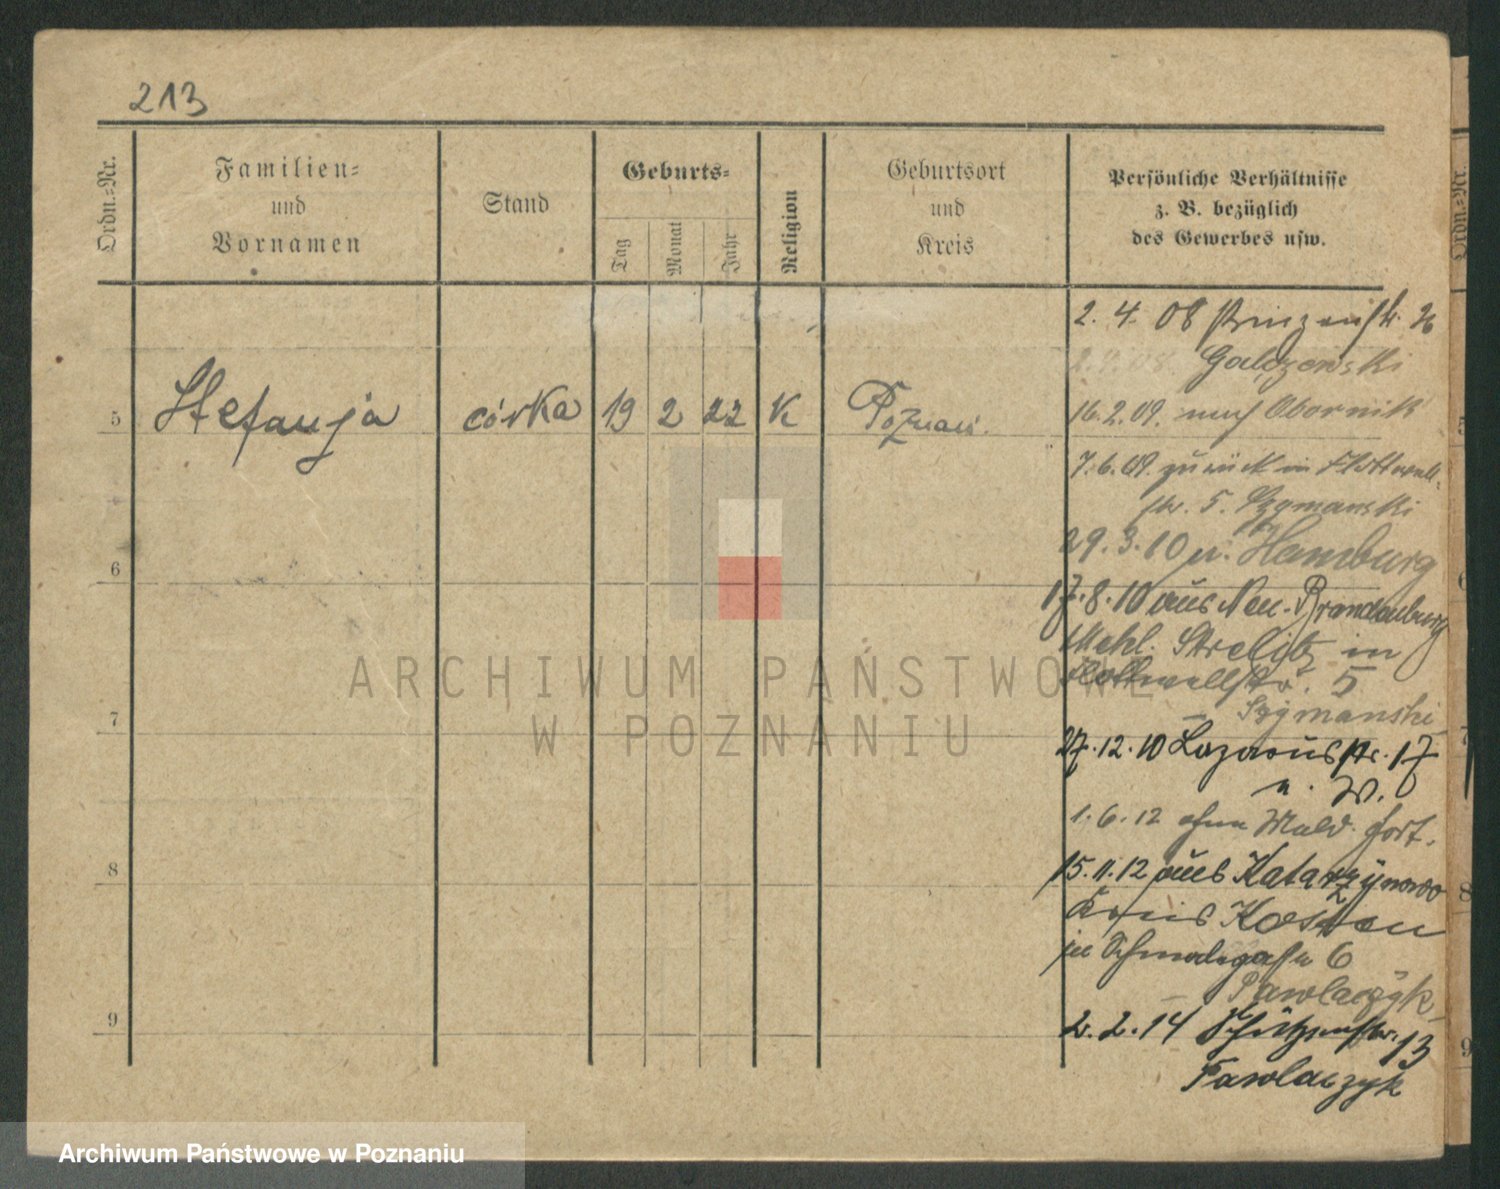 213
Ordn.=Nr.
Familien=
und
Vornamen
Stand
Geburts=
Tag
Monat
Jahr
Religion
Geburtsort
und
Kreis
Persönliche Verhältnisse
z. B. bezüglich
des Gewerbes usw.
5 Stefanja córka 19 2 22 K Poznań.
6
7
8
9
2. 4. 08 Prinzenstr. 26
2.4.08. Galdzewski
16.2.09. nach Obornik
7.6.09. zurück in Flottwell-
str. 5. Szymanski
29.3.10 n. Hamburg
17.8.10 aus Neu-Brandenburg
Mekl. Strelitz in
Flottwellstr. 5
Szymanski
27.12.10 Lazarusstr. 17
n. W.
1.6.12 ohne Meld. fort.
15.11.12 aus Katarzynowo
Kreis Kosten
in Schmale 6
Pawlaczyk
2.2.14 Schützenstr. 13
Pawlaczyk
ARCHIWUM PAŃSTWOWE
W POZNANIU
Archiwum Państwowe w Poznaniu
Ordn.=Nr.